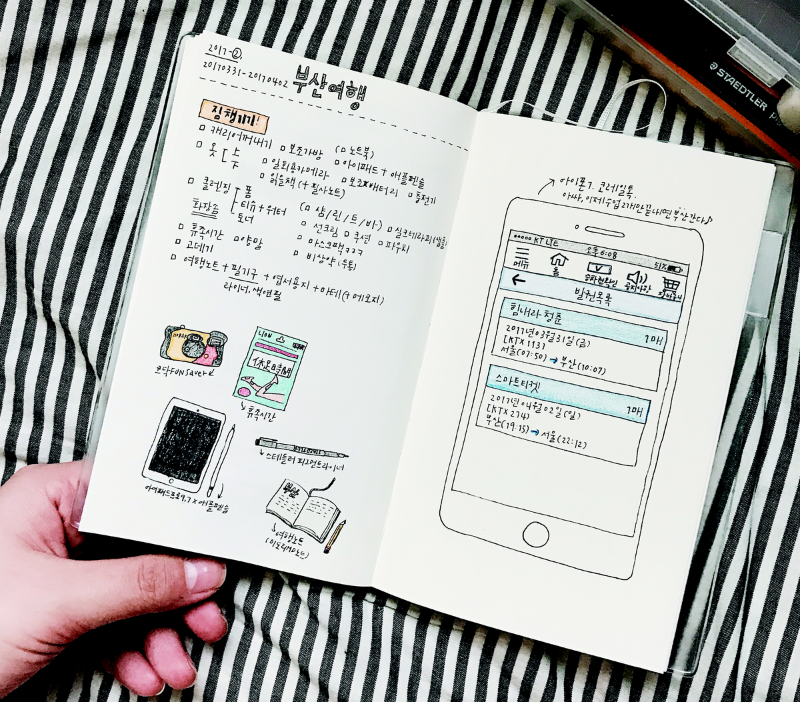 2017-②.
20170331-20170402 부산여행
짐챙기기!
□ 캐리어꺼내기 □ 보조가방 (□ 노트북)
□ 옷 [ 上 下 □ 일회용카메라 □ 아이패드 + 애플펜슬
□ 읽을책 (+ 필사노트) □ 보조배터리 □ 충전기
□ 클렌징 [ 폼 티슈 + 워터 토너 (□ 샴/린/트/바) □ 실크테라피
화장품 □ 선크림 □ 쿠션 □ 파우치
□ 휴족시간 □ 양말 □ 마스크팩ㅋㅋㅋ
□ 고데기 □ 비상약
□ 여행노트 + 필기구 + 엽서용지 + 마테 (+ 메모지)
라이너, 색연필
코닥 FUN saver
LION
休足時間
휴족시간
아이패드프로9.7 × 애플펜슬
스테들러 피그먼트라이너
여행노트
아이폰7. 코레일톡.
아싸, 이제 수업2개만 끝내면 부산간다♪
●●●●○ KT LTE 오후 6:08 51%
메뉴 홈 장바구니
← 발권목록
힘내라 청춘 1매
2017년 03월 31일 (금)
[KTX 113]
서울 (07:50) → 부산 (10:07)
스마트티켓 1매
2017년 04월 02일 (일)
[KTX 274]
부산 (19:15) → 서울 (22:12)
STAEDTLER